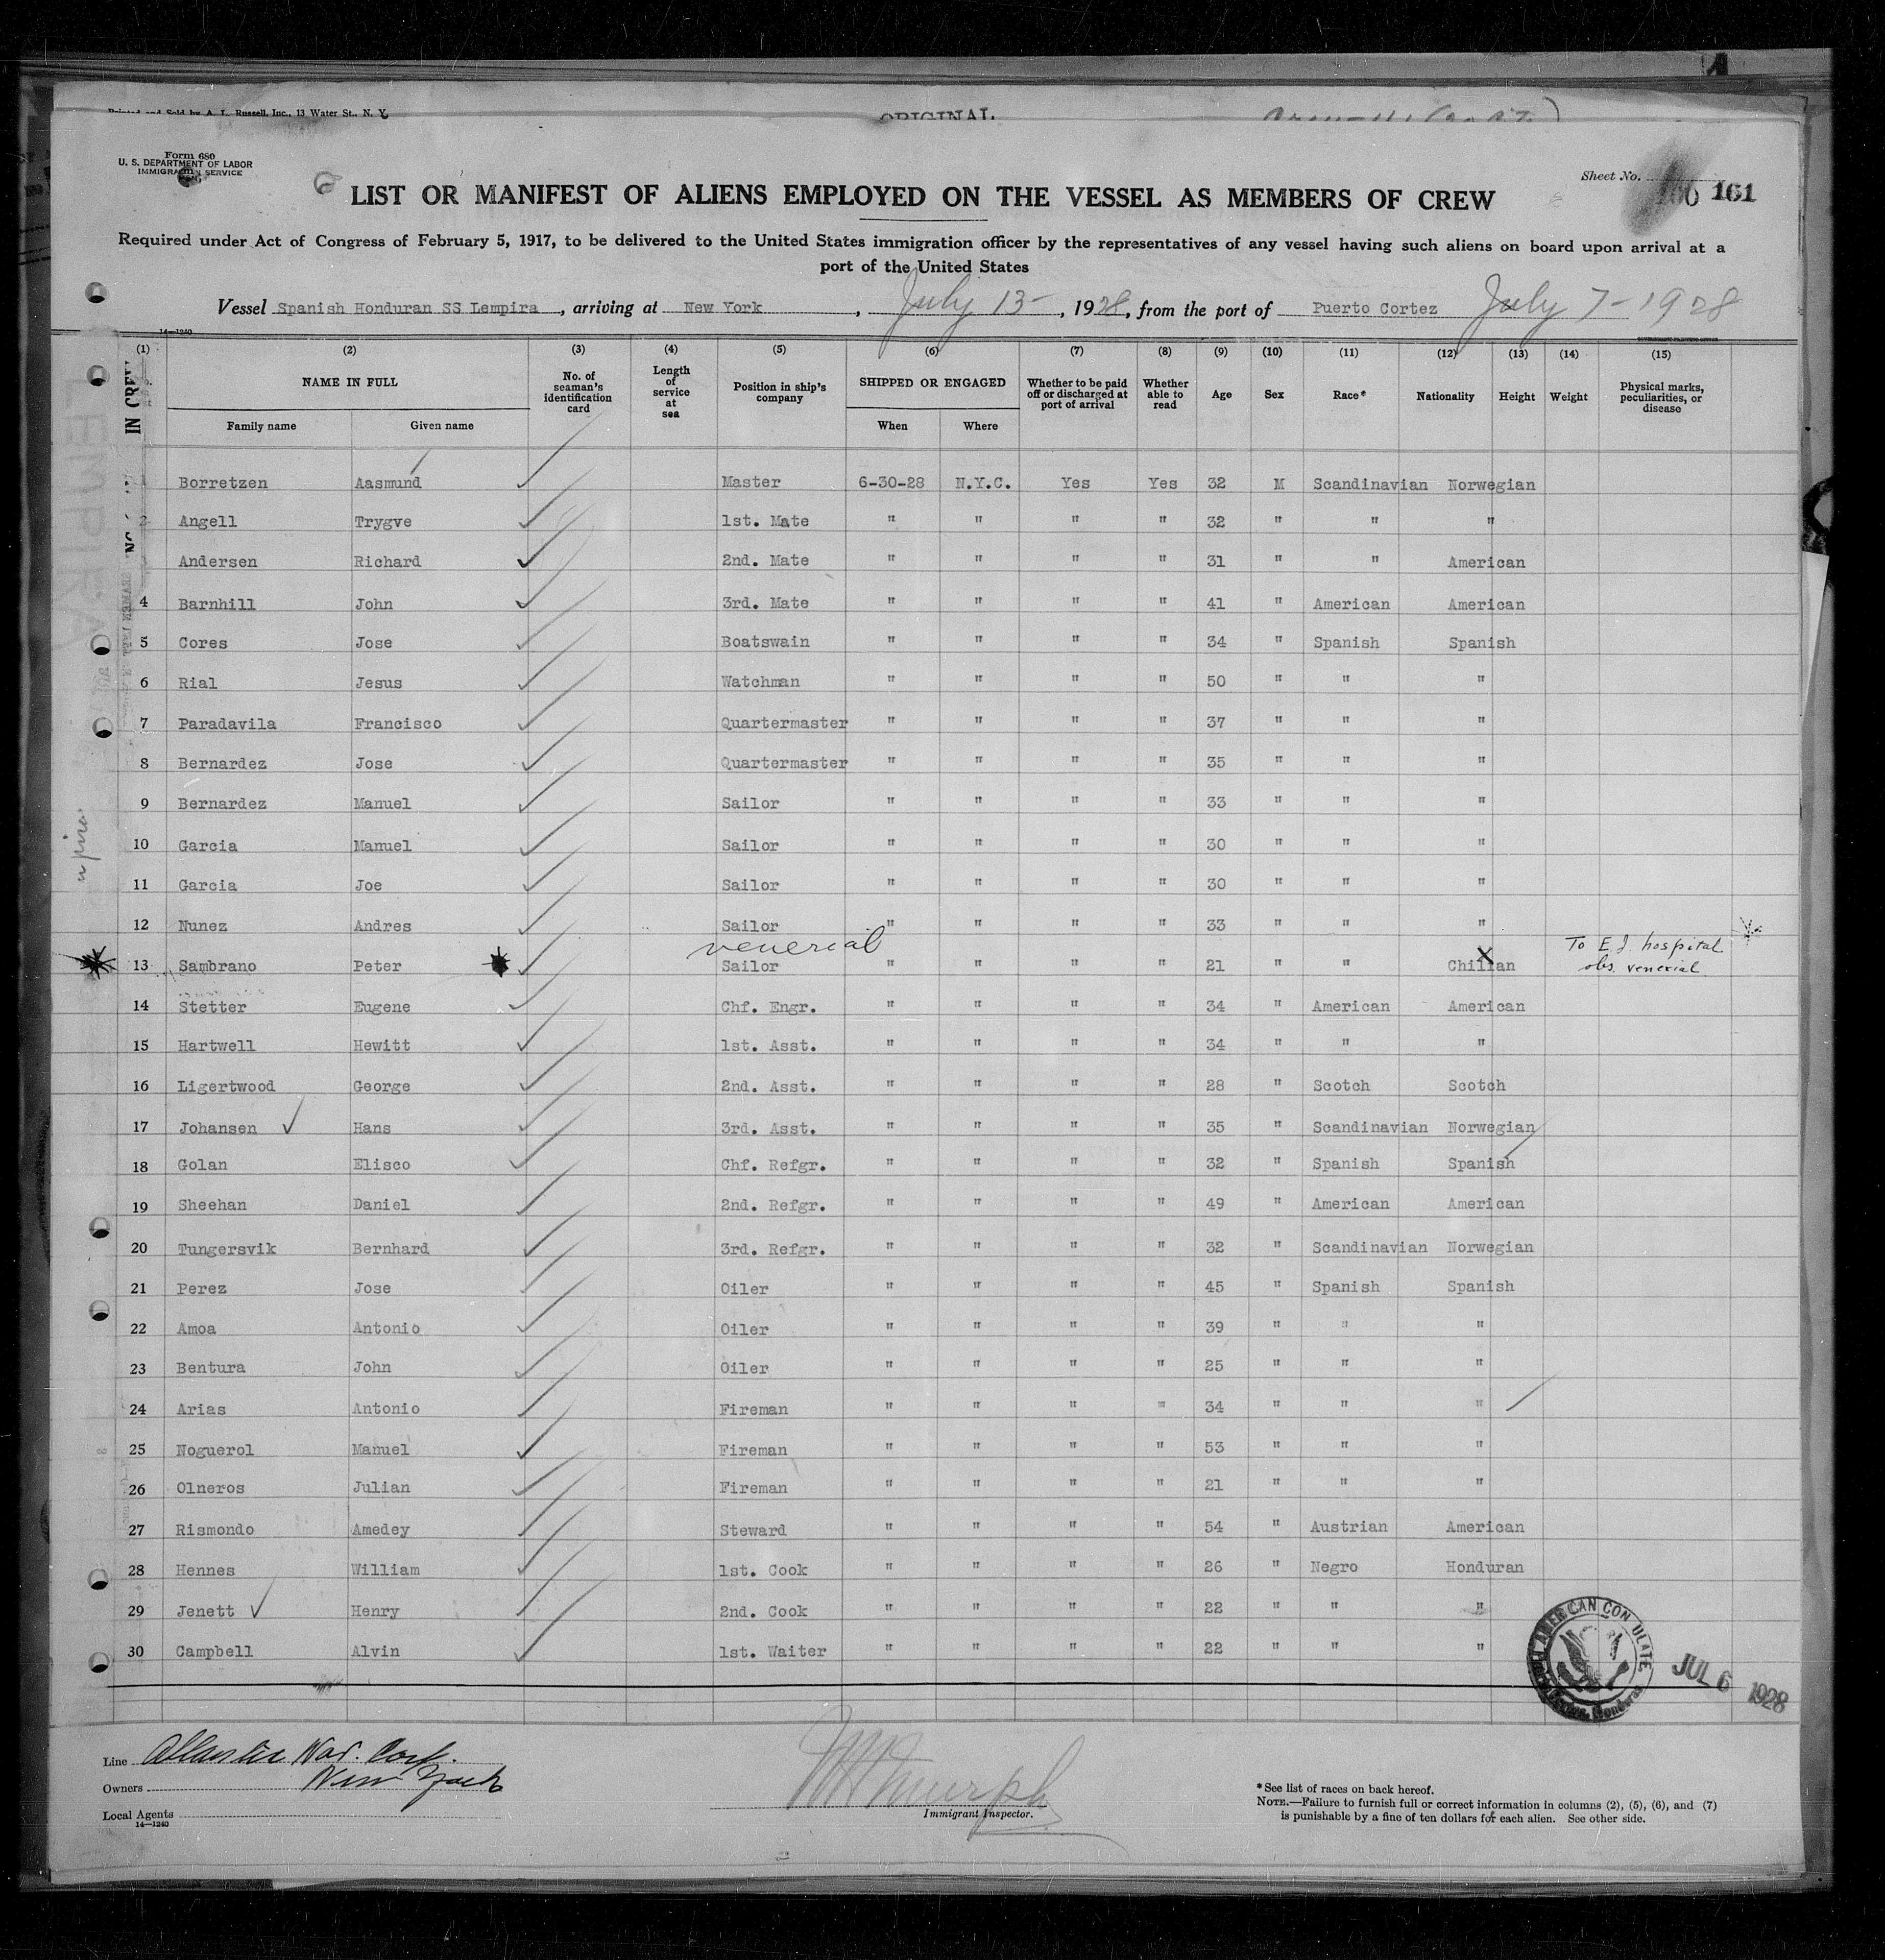 Printed and Sold by A. L. Russell, Inc., 13 Water St., N. Y.
ORIGINAL
Form 680
U. S. DEPARTMENT OF LABOR
IMMIGRATION SERVICE
Sheet No. 161
LIST OR MANIFEST OF ALIENS EMPLOYED ON THE VESSEL AS MEMBERS OF CREW
Required under Act of Congress of February 5, 1917, to be delivered to the United States immigration officer by the representatives of any vessel having such aliens on board upon arrival at a
port of the United States
Vessel Spanish Honduran SS Lempira, arriving at New York, July 13-, 1928, from the port of Puerto Cortez July 7-1928
14-1240
(1) (2) (3) (4) (5) (6) (7) (8) (9) (10) (11) (12) (13) (14) (15)
NAME IN FULL No. of seaman's identification card Length of service at sea Position in ship's company SHIPPED OR ENGAGED Whether to be paid off or discharged at port of arrival Whether able to read Age Sex Race* Nationality Height Weight Physical marks, peculiarities, or disease
Family name Given name When Where
1 Borretzen Aasmund Master 6-30-28 N.Y.C. Yes Yes 32 M Scandinavian Norwegian
2 Angell Trygve 1st. Mate " " " " 32 " " "
Andersen Richard 2nd. Mate " " " " 31 " " American
4 Barnhill John 3rd. Mate " " " " 41 " American American
5 Cores Jose Boatswain " " " " 34 " Spanish Spanish
6 Rial Jesus Watchman " " " " 50 " " "
7 Paradavila Francisco Quartermaster " " " " 37 " " "
8 Bernardez Jose Quartermaster " " " " 35 " " "
9 Bernardez Manuel Sailor " " " " 33 " " "
10 Garcia Manuel Sailor " " " " 30 " " "
11 Garcia Joe Sailor " " " " 30 " " "
12 Nunez Andres Sailor " " " " 33 " " "
venerial To E.I. hospital
13 Sambrano Peter Sailor " " " " 21 " " Chilian obs. venerial
14 Stetter Eugene Chf. Engr. " " " " 34 " American American
15 Hartwell Hewitt 1st. Asst. " " " " 34 " " "
16 Ligertwood George 2nd. Asst. " " " " 28 " Scotch Scotch
17 Johansen Hans 3rd. Asst. " " " " 35 " Scandinavian Norwegian
18 Golan Elisco Chf. Refgr. " " " " 32 " Spanish Spanish
19 Sheehan Daniel 2nd. Refgr. " " " " 49 " American American
20 Tungersvik Bernhard 3rd. Refgr. " " " " 32 " Scandinavian Norwegian
21 Perez Jose Oiler " " " " 45 " Spanish Spanish
22 Amoa Antonio Oiler " " " " 39 " " "
23 Bentura John Oiler " " " " 25 " " "
24 Arias Antonio Fireman " " " " 34 " " "
25 Noguerol Manuel Fireman " " " " 53 " " "
26 Olneros Julian Fireman " " " " 21 " " "
27 Rismondo Amedey Steward " " " " 54 " Austrian American
28 Hennes William 1st. Cook " " " " 26 " Negro Honduran
29 Jenett Henry 2nd. Cook " " " " 22 " " "
30 Campbell Alvin 1st. Waiter " " " " 22 " " "
AMERICAN CONSULATE
Honduras
JUL 6 1928
Line Atlantic Nav. Corp.
Owners New York
Local Agents
14-1240
Immigrant Inspector.
*See list of races on back hereof.
NOTE.—Failure to furnish full or correct information in columns (2), (5), (6), and (7)
is punishable by a fine of ten dollars for each alien. See other side.